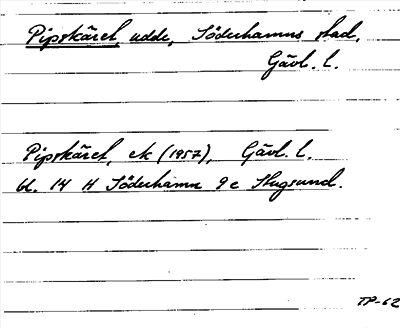 Pipskäret, udde, Söderhamns stad,
Gävl. l.
Pipskäret, ek (1957), Gävl. l.
bl. 14 H Söderhamn 9 c Stugsund.
TP-62